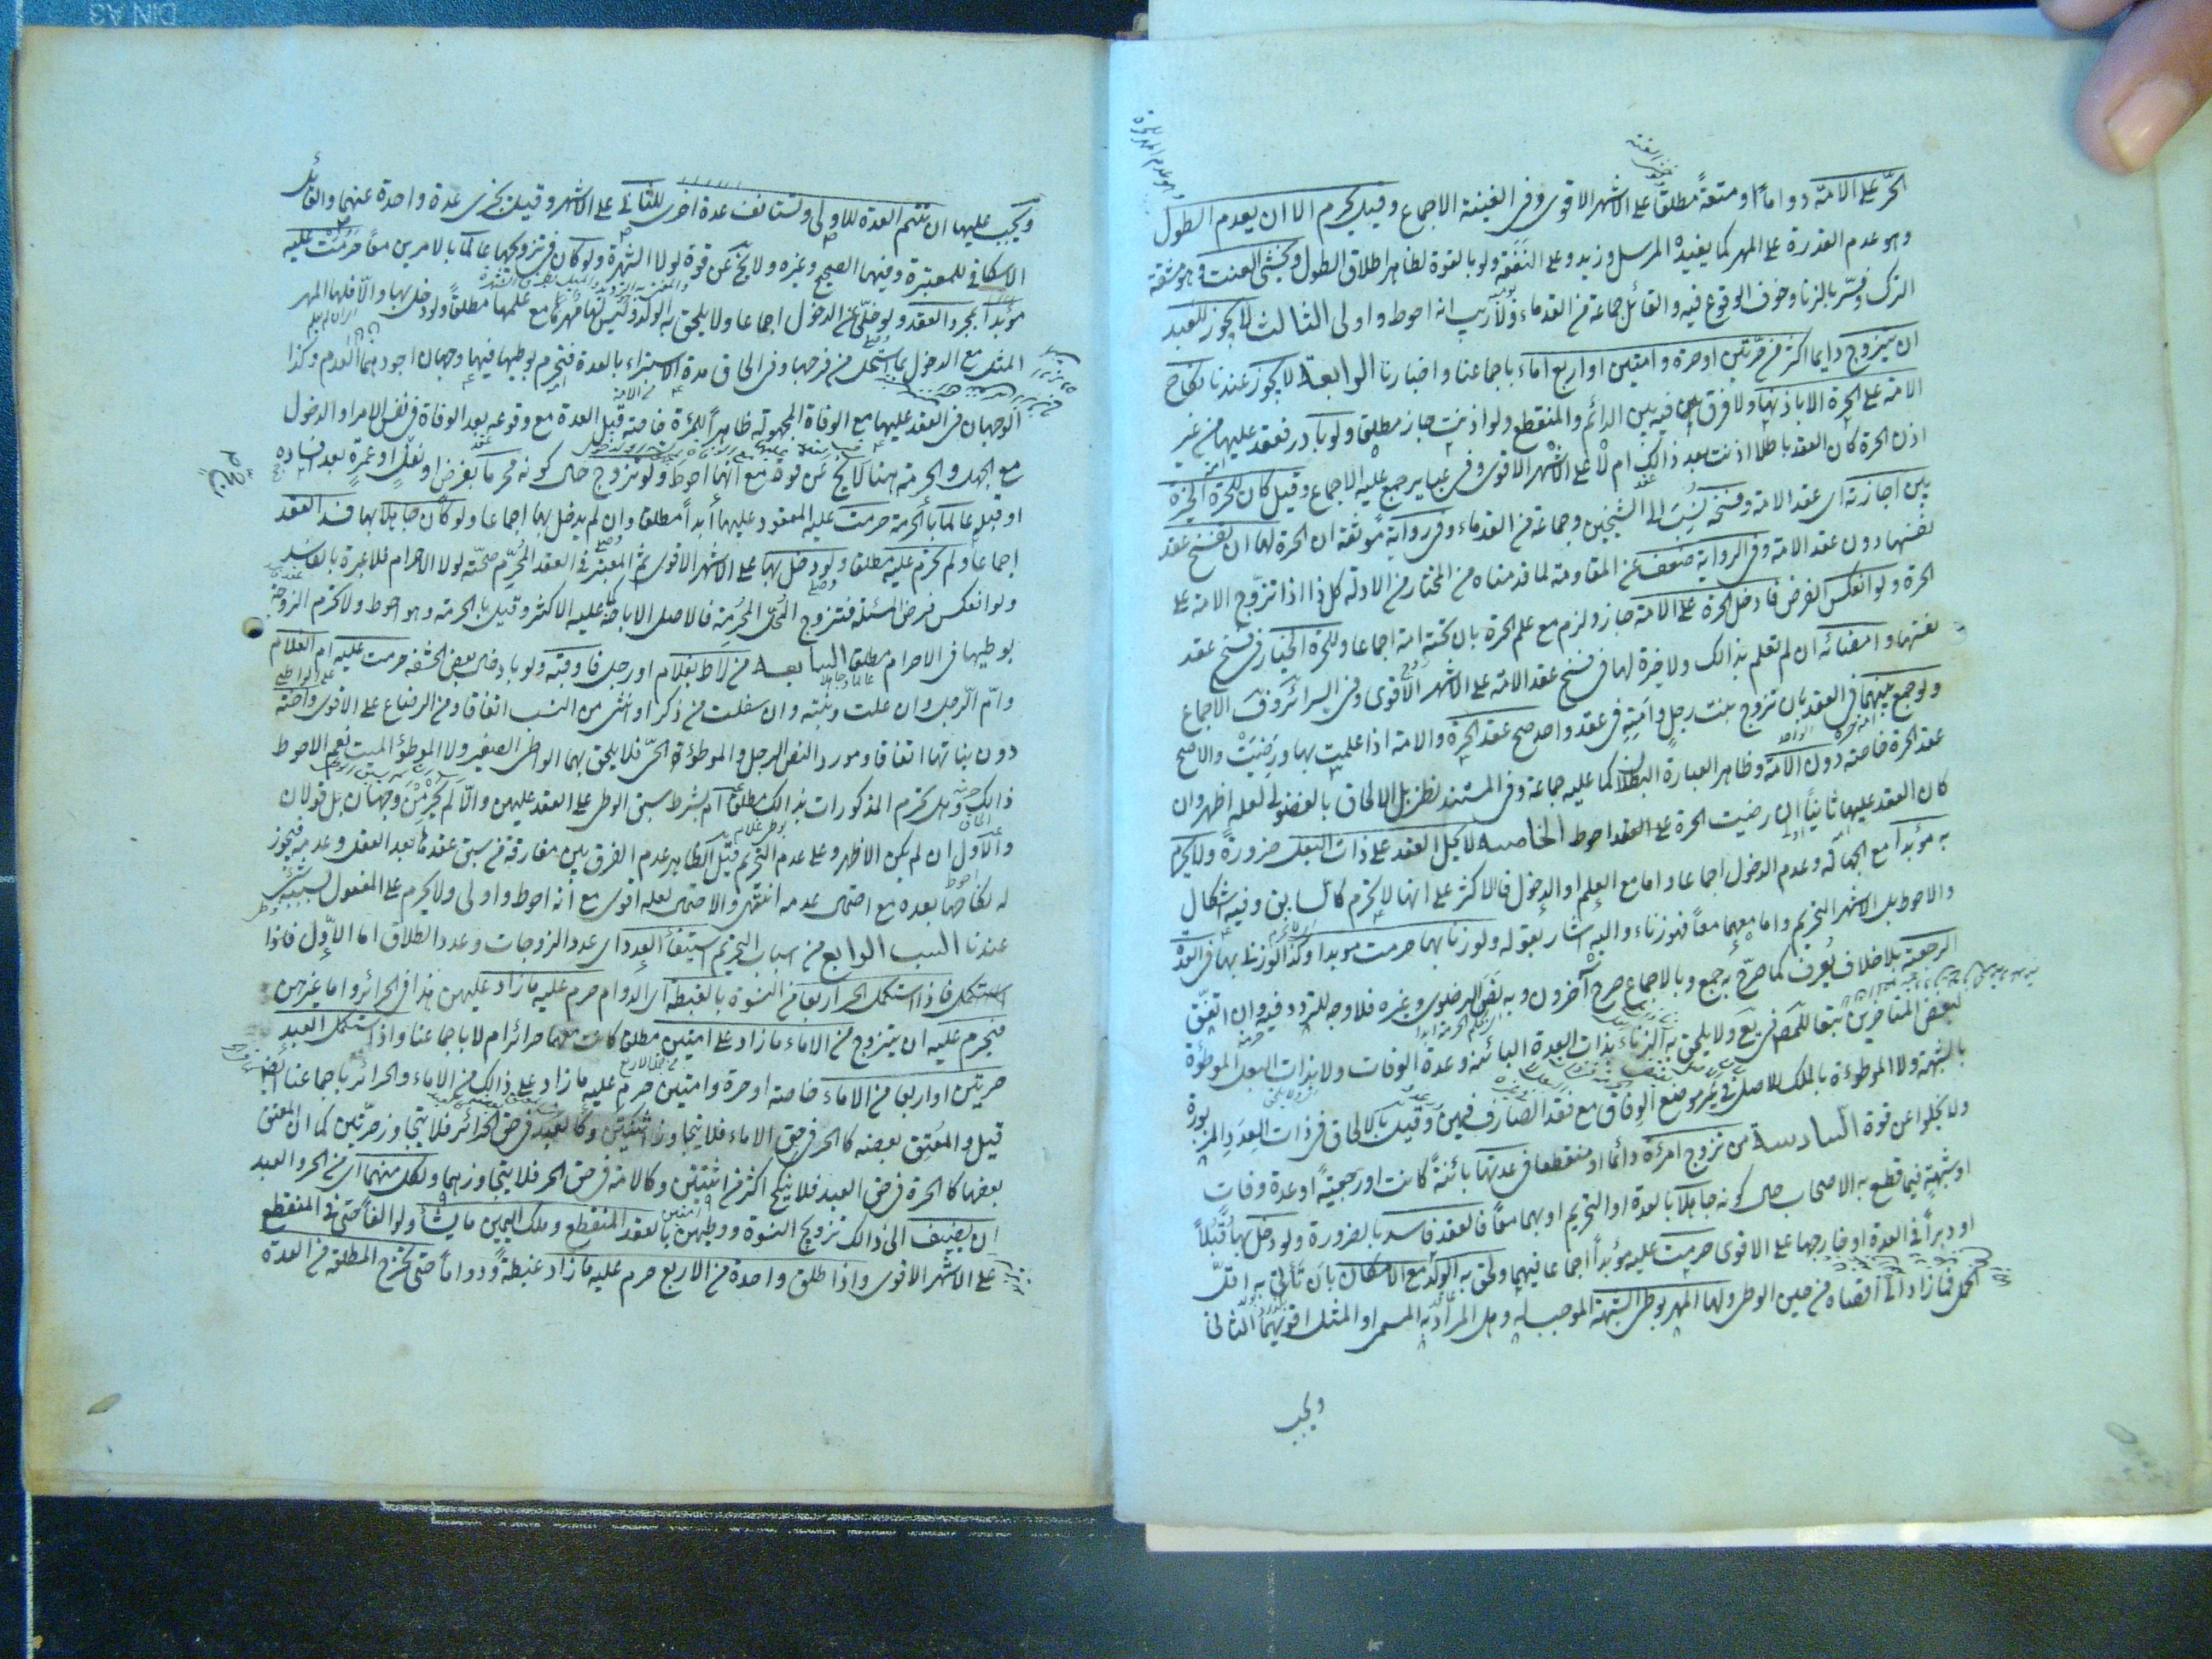 الحرّ على الامة دواماً او متعةً مطلقا على الاشهر الاقوى وفى الغنية الاجماع وقيل يحرم الا ان يعدم الطول
وهو عدم القدرة على المهر كما يفيده المرسل وزيد وعلى النفقة ولو بالقوة لظاهر اطلاق الطول ويخشى العنت وهو مشقة
الترك وفسّر بالزنا وخوف الوقوع فيه والقائل جماعة من القدماء ولا ريب انه احوط واولى الثالث لا يجوز للعبد
ان يتزوج دايما اكثر من حرّتين او حرة وامتين او اربع اماء باجماعنا واخبارنا الرابعة لا يجوز عندنا نكاح
الامة على الحرة الا باذنها ولا فرق فيه بين الدائم والمنقطع ولو اذنت جاز مطلقا ولو بادر فعقد عليها من غير
اذن الحرة كان العقد باطلا اذنت بعد ذالك ام لا على الاشهر الاقوى وفى عباير جمع عليه الاجماع وقيل كان للحرة الخيرة
بين اجازته اى عقد الامة وفسخه نسب الى الشيخين وجماعة من القدماء وفى رواية موثقة ان الحرة لها ان تفسخ عقد
نفسها دون عقد الامة وفى الرواية ضعف عن المقاومة لما قدمناه من المختار من الادلة كل ذا اذا تزوّج الامة على
الحرة ولو انعكس الفرض فادخل الحرة على الامة جاز ولزم مع علم الحرة بان تحته امة اجماعا وللحرة الخيار فى فسخ عقد
نفسها وامضائه ان لم تعلم بذالك ولا خيرة لها فى فسخ عقد الامة على الاشهر الاقوى وفى السرائر وفٓ الاجماع
ولو جمع بينهما فى العقد بان تزوج بنت رجل وامته فى عقد واحد صح عقد الحرة والامة اذا علمت بها ورضيت والاصح
عقد الحرة خاصة دون الامة وظاهر العبارة البطلان كما عليه جماعة وفى المستند نظر بل الالحاق بالفضولى لعله اظهر وان
كان العقد عليها ثانياً ان رضيت الحرة على العقد احوط الخامسة لا يحل العقد على ذات البعل ضرورة ولا يحرم
به مؤبدا مع الجهالة وعدم الدخول اجماعا واما مع العلم او الدخول فالاكثر على انها لا تحرم كالسابق وفيه اشكال
والاحوط بل الاشهر التحريم واما معهما معاً فهو زناء واليه اشار بقوله ولو زنا بها حرمت موبدا وكذا لو زنا بها فى العدة
الرجعية بلا خلاف يُعرف كما صرّح به جمع وبالاجماع صرح آخرون وبه نصّ الرضوى وغيره فلا وجه للتردد فيه وان اتفق
لبعض المتأخرين تبعا للمصٓ فى يع ولا يلحق به الزناء بذات العدة البائنة وعدة الوفات ولا بذات البعل الموطؤة
بالشبهة ولا الموطوءة بالملك للاصل فى غير موضع الوفاق مع فقد الصارف فيهن وقيل بالالحاق فى ذات العِدَدِ المزبورة
ولا يخلوا عن قوة السادسة من تزوج امرئة دائما او منقطعا فى عدتها بائنةً كانت او رجعيةً او عدة وفات
او شبهة فيما قطع به الاصحاب حال كونه جاهلا بالعدة او التحريم او بهما معاً فالعقد فاسد بالضرورة ولو دخل بها قُبُلاً
او دبراً فى العدة او خارجها على الاقوى حرمت عليه مؤبداً اجماعا فيهما ولحق به الولد مع الامكان بان تأتى به اقلّ
الحمل فما زاد الى اقصاه من حين الوطى ولها المهر بوطى الشبهة الموجب له وهل المراد به المسمى او المثل اقويهما الثانى
ويجب
ويجب عليها ان تتم العدة للاولى وتستانف عدة اخرى للثانى على الاشهر وقيل يجزى عدة واحدة عنهما والقائل
الاسكافى للمعتبرة وفيها الصحيح وغيره ولا يخ عن قوة لولا الشهرة ولو كان فى تزوجها عالما بالامرين معاً حرمت عليه
مؤبداً بمجرد العقد ولو خلّى عن الدخول اجماعا ولا يلحق به الولد وليس لها مهر مع علمها مطلقاً ولو دخل بها والّا فلها المهر
المثل مع الدخول بما استحل من فرجها وفى الحاق مدة الاستبراء بالعدة فتحرم بوطيها فيها وجهان اجودهما العدم وكذا
الوجهان فى العقد عليها مع الوفاة المجهولة ظاهراً للمرئة خاصة قبل العدة مع وقوعه بعد الوفاة فى نفس الامر او الدخول
مع الجهل والحرمة هنا لا يخ عن قوة مع انها احوط ولو تزوج حال كونه محرما بفرض او نفلٍ او عمرةٍ بعد فساده
او قبله عالما بالحرمة حرمت عليه المعقود عليها أبداً مطلقا وان لم يدخل بها اجماعا ولو كان جاهلا بها فسد العقد
اجماعاً ولم تحرم عليه مطلقا ولو دخل بها على الاشهر الاقوى ثم المعتبر فى العقد المحرّم صحّته لولا الاحرام فلا عبرة بالفاسد
ولو انعكس فرض المسئلة فتزوج المُحلّ المُحرمة فالاصل الاباحة كما عليه الاكثر وقيل بالحرمة وهو احوط ولا تحرم الزوجة
بوطيها فى الاحرام مطلقا السابعة من لاط بغلام او رجل فاوقبه ولو بادخال بعض الحشفة حرمت عليه ام الغلام
وامّ الرّجل وان علت وبنته وان سفلت من ذكر او انثى من النسب اتفاقا ومن الرضاع على الاقوى واخته
دون بناتها اتفاقا ومورد النص الرجل والموطؤة الحىّ فلا يلحق بهما الواطى الصغير ولا الموطؤ الميت نعم الاحوط
ذالك وهل تحرم المذكورات بذالك مطلقا ام بشرط سبق الوطى على العقد عليهن والّا لم يحرمن وجهان بل قولان
والاول ان لم يكن الاظهر وعلى عدم التحريم قيل الظاهر عدم الفرق بين مفارقة من سبق عقدها بعد العقد وعدمه فيجوز
له نكاحها بعده مع احتمال عدمه انتهى والاحتمال لعله اقوى مع انه احوط واولى ولا يحرم على المفعول بسببه شئ
عندنا السبب الرابع من اسباب التحريم استيفاء العدد اى عدد الزوجات وعدد الطلاق اما الاوّل فاذا
استكمل فاذا استكمل الحر اربعا من النسوة بالغبطة اى الدوام حرم عليه ما زاد عليهن هذا فى الحرائر واما غيرهن
فيحرم عليه ان يتزوج من الاماء ما زاد على امتين مطلقا كانت معهما حرائر ام لا باجماعنا واذا استكمل العبد
حرتين او اربعا من الاماء خاصة او حرة وامتين حرم عليه ما زاد على ذالك من الاماء والحرائر باجماعنا ايضا
قيل والمُعتق بعضه كالحر فى حق الاماء فلا يتجاوز اثنتين وكالعبد فى حق الحرائر فلا يتجاوز حرّتين كما ان المعتق
بعضها كالحرة فى حق العبد فلا ينكح اكثر من اثنتين وكالامة فى حق الحر فلا يتجاوزهما ولكل منهما اى من الحر والعبد
ان يضيف الى ذالك تزويج النسوة ووطيهن بالعقد المنقطع وملك اليمين ما يشآء ولو الفاً حتى فى المنقطع
على الاشهر الاقوى واذا طلق واحدة من الاربع حرم عليه ما زاد غبطةً ودواماً حتى تخرج المطلقة من العدة